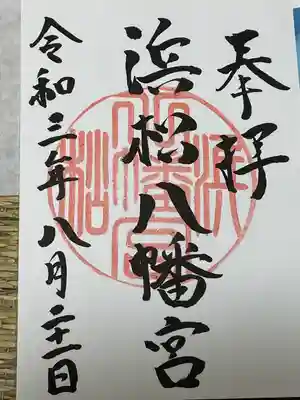 奉拝
浜松八幡宮
令和三年八月二十一日